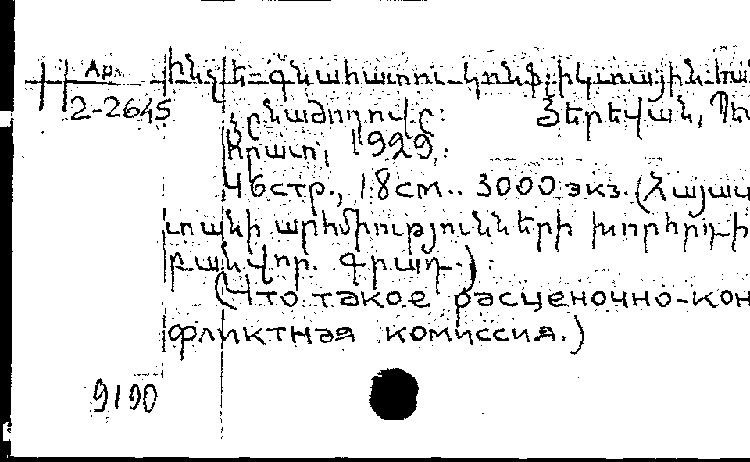 Арм. Ինչ է գնահատու-կոնֆլիկտային հան
2-2645 ձրնաժողովը: Յերեվան, Պե
հրատ, 1929.
46стр., 18см.. 3000экз. (Հայաս
տանի արհմիությունների խորհրդի
բանվոր. գրադ.)
(Что такое расценочно-кон
фликтная комиссия.)
9190